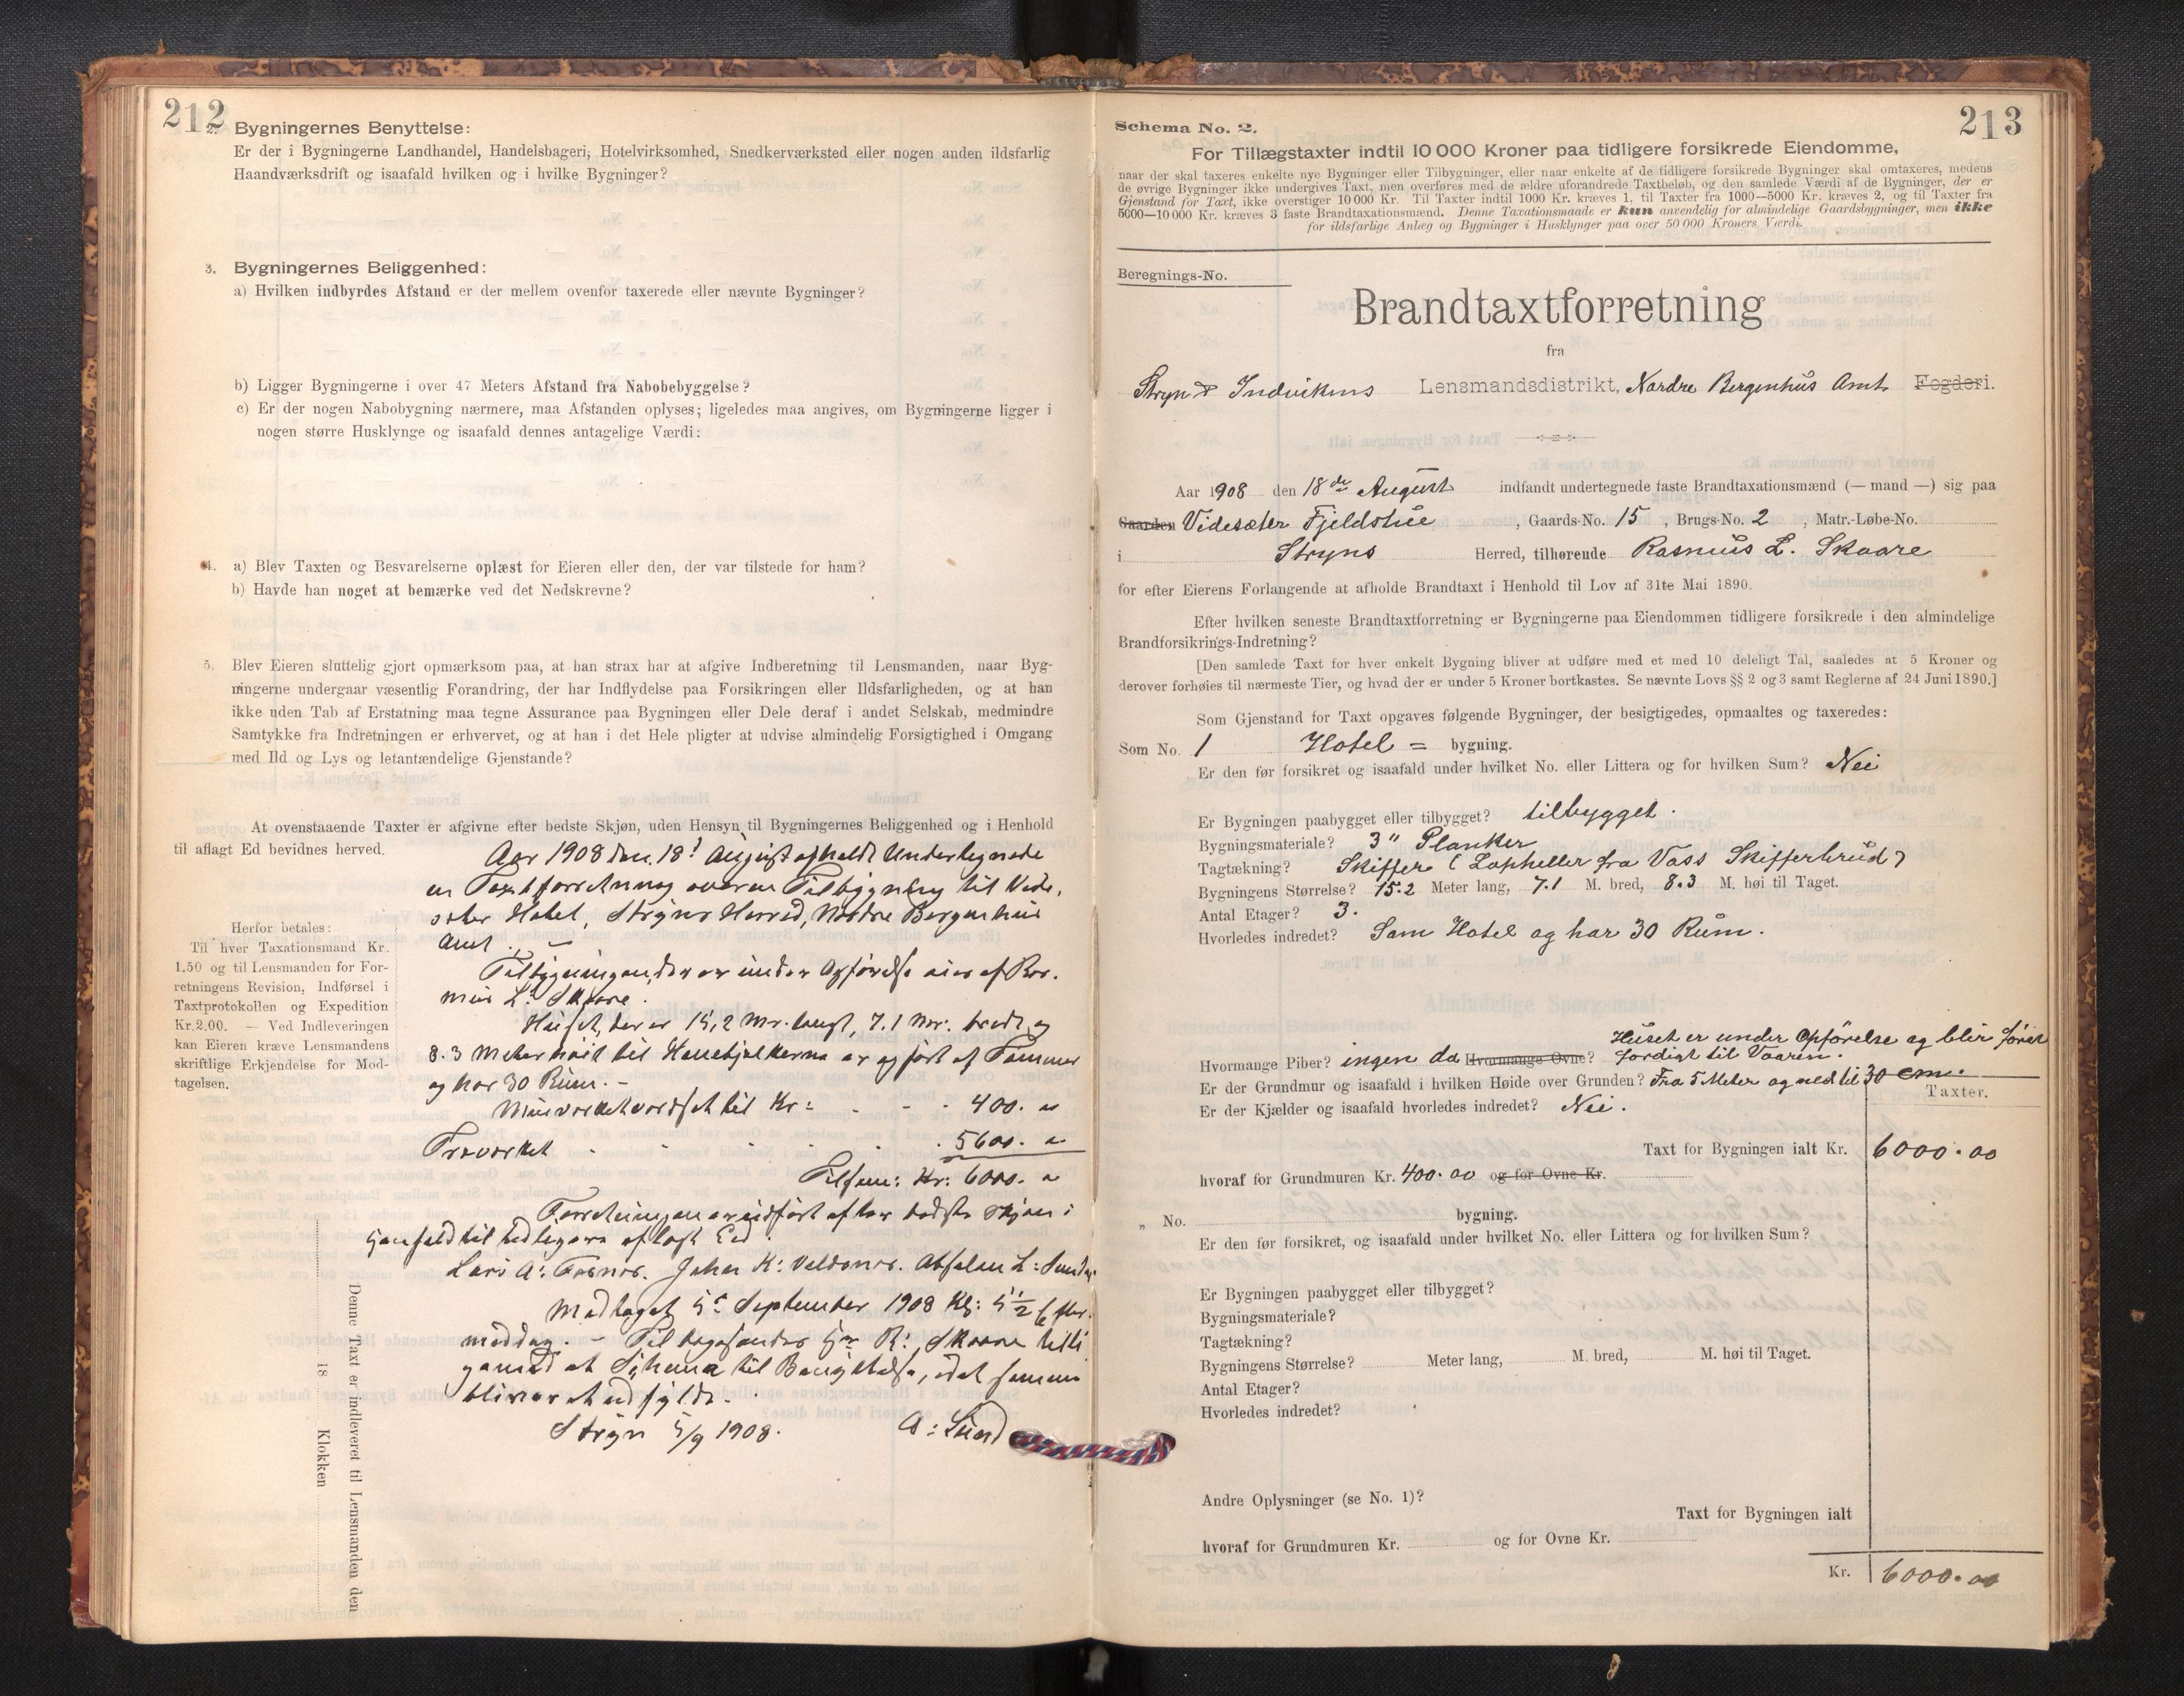 212
2. Bygningernes Benyttelse:
Er der i Bygningerne Landhandel, Handelsbageri, Hotelvirksomhed, Snedkerværksted eller nogen anden ildsfarlig
Haandværksdrift og isaafald hvilken og i hvilke Bygninger?
3. Bygningernes Beliggenhed:
a) Hvilken indbyrdes Afstand er der mellem ovenfor taxerede eller nævnte Bygninger?
b) Ligger Bygningerne i over 47 Meters Afstand fra Nabobebyggelse?
c) Er der nogen Nabobygning nærmere, maa Afstanden oplyses; ligeledes maa angives, om Bygningerne ligger i
nogen større Husklynge og isaafald dennes antagelige Værdi:
4. a) Blev Taxten og Besvarelserne oplæst for Eieren eller den, der var tilstede for ham?
b) Havde han noget at bemærke ved det Nedskrevne?
5. Blev Eieren sluttelig gjort opmærksom paa, at han strax har at afgive Indberetning til Lensmanden, naar Byg-
ningerne undergaar væsentlig Forandring, der har Indflydelse paa Forsikringen eller Ildsfarligheden, og at han
ikke uden Tab af Erstatning maa tegne Assurance paa Bygningen eller Dele deraf i andet Selskab, medmindre
Samtykke fra Indretningen er erhvervet, og at han i det Hele pligter at udvise almindelig Forsigtighed i Omgang
med Ild og Lys og letantændelige Gjenstande?
At ovenstaaende Taxter er afgivne efter bedste Skjøn, uden Hensyn til Bygningernes Beliggenhed og i Henhold
til aflagt Ed bevidnes herved.
Aar 1908 den 18: August afholdt Undertegnede
en Taxtforretning over en Tilbygning til Vide-
sæter Hotel, Stryns Herred, Nordre Bergenhus
Amt. –
Tilbygningen, der er under Opførelse eies af Ras-
mus L. Skaare.
Huset, der er 15,2 Mr. langt, 7.1 Mr. bredt og
8.3 Meter høit til Hanebjelkerne er opført af Tømmer
og har 30 Rum. –
Murværket værdsat til Kr: - - - 400. 00
Træværket - - - - - 5600. 00
Tilsam: Kr: 6000. 00
Forretningen er udført efter bedste Skjøn i
Henhold til tidligere aflagt Eed.
Lars A: Tosnes. Johan K: Veldsnes. Absalon L: Sunde.
Modtaget 5te September 1908 Kl: 5 1/2 Efter-
middag. – Tilbagesendes Hr R: Skaare tilli-
gemed et Schema til Benyttelse, idet samme
bliver at udfylde.
Stryn 5/9 1908. A: Sund
Herfor betales:
Til hver Taxationsmand Kr.
1,50 og til Lensmanden for For-
retningens Revision, Indførsel i
Taxtprotokollen og Expedition
Kr. 2.00. — Ved Indleveringen
kan Eieren kræve Lensmandens
skriftlige Erkjendelse for Mod-
tagelsen.
Denne Taxt er indleveret til Lensmanden den
18 Klokken
213
Schema No. 2.
For Tillægstaxter indtil 10 000 Kroner paa tidligere forsikrede Eiendomme,
naar der skal taxeres enkelte nye Bygninger eller Tilbygninger, eller naar enkelte af de tidligere forsikrede Bygninger skal omtaxeres, medens
de øvrige Bygninger ikke undergives Taxt, men overføres med de ældre uforandrede Taxtbeløb, og den samlede Værdi af de Bygninger, der er
Gjenstand for Taxt, ikke overstiger 10 000 Kr. Til Taxter indtil 1000 Kr. kræves 1, til Taxter fra 1000—5000 Kr. kræves 2, og til Taxter fra
5000—10 000 Kr. kræves 3 faste Brandtaxationsmænd. Denne Taxationsmaade er kun anvendelig for almindelige Gaardsbygninger, men ikke
for ildsfarlige Anlæg og Bygninger i Husklynger paa over 50 000 Kroners Værdi.
Beregnings-No.
Brandtaxtforretning
fra
Stryn & Indvikens Lensmandsdistrikt, Nordre Bergenhus Amt Fogderi.
Aar 1908 den 18de August indfandt undertegnede faste Brandtaxationsmænd (— mand —) sig paa
Gaarden Videsæter Fjeldstue, Gaards-No. 15, Brugs-No. 2, Matr.-Løbe-No.
i Stryns Herred, tilhørende Rasmus L. Skaare
for efter Eierens Forlangende at afholde Brandtaxt i Henhold til Lov af 31te Mai 1890.
Efter hvilken seneste Brandtaxtforretning er Bygningerne paa Eiendommen tidligere forsikrede i den almindelige
Brandforsikrings-Indretning?
[Den samlede Taxt for hver enkelt Bygning bliver at udføre med et med 10 deleligt Tal, saaledes at 5 Kroner og
derover forhøies til nærmeste Tier, og hvad der er under 5 Kroner bortkastes. Se nævnte Lovs §§ 2 og 3 samt Reglerne af 24 Juni 1890.]
Som Gjenstand for Taxt opgaves følgende Bygninger, der besigtigedes, opmaaltes og taxeredes:
Som No. 1 Hotel = bygning.
Er den før forsikret og isaafald under hvilket No. eller Littera og for hvilken Sum? Nei
Er Bygningen paabygget eller tilbygget? tilbygget.
Bygningsmateriale? 3" Planker
Tagtækning? Skiffer (Lapheller fra Vass Skifferbrud)
Bygningens Størrelse? 15.2 Meter lang, 7.1 M. bred, 8.3 M. høi til Taget.
Antal Etager? 3.
Hvorledes indredet? Som Hotel og har 30 Rum.
Huset er under Opførelse og blir først
Hvormange Piber? ingen da Hvormange Ovne? færdigt til Vaaren.
Er der Grundmur og isaafald i hvilken Høide over Grunden? Fra 5 Meter og ned til 30 cm.
Er der Kjælder og isaafald hvorledes indredet? Nei.
Taxter.
Taxt for Bygningen ialt Kr. 6000.00
hvoraf for Grundmuren Kr. 400.00 og for Ovne Kr.
„ No. bygning.
Er den før forsikret, og isaafald under hvilket No. eller Littera og for hvilken Sum?
Er Bygningen paabygget eller tilbygget?
Bygningsmateriale?
Tagtækning?
Bygningens Størrelse? Meter lang, M. bred, M. høi til Taget.
Antal Etager?
Hvorledes indredet?
Andre Oplysninger (se No. 1)?
Taxt for Bygningen ialt
hvoraf for Grundmuren Kr. og for Ovne Kr.
Kr. 6000.00